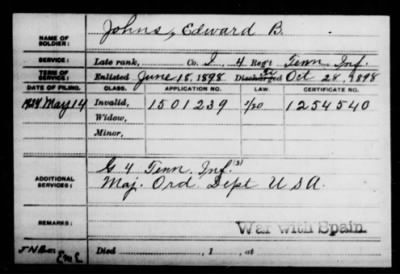 NAME OF SOLDIER: Johns, Edward B.
SERVICE: Late rank, Co. I, 4 Reg't Tenn. Inf.
TERM OF SERVICE: Enlisted June 15, 1898 Discharged Oct 28, 1898
DATE OF FILING. CLASS. APPLICATION NO. LAW. CERTIFICATE NO.
1924 May 14 Invalid, 1501239 1254540
Widow,
Minor,
ADDITIONAL SERVICES: G 4 Tenn. Inf.
Maj. Ord. Dept U S A.
REMARKS: War with Spain.
Died , 1 , at